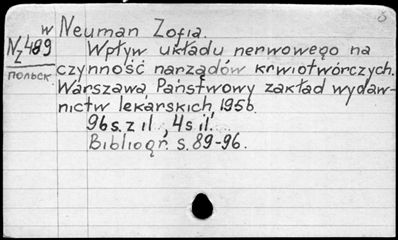 W Neuman Zofia.
NZ 489 Wpływ układu nerwowego na
польск. czynność narządów krwiotwórczych.
Warszawa, Państwowy zakład wydaw-
nictw lekarskich, 1956.
96 s. z il., 4 s. il.
Bibliogr. s. 89-96.